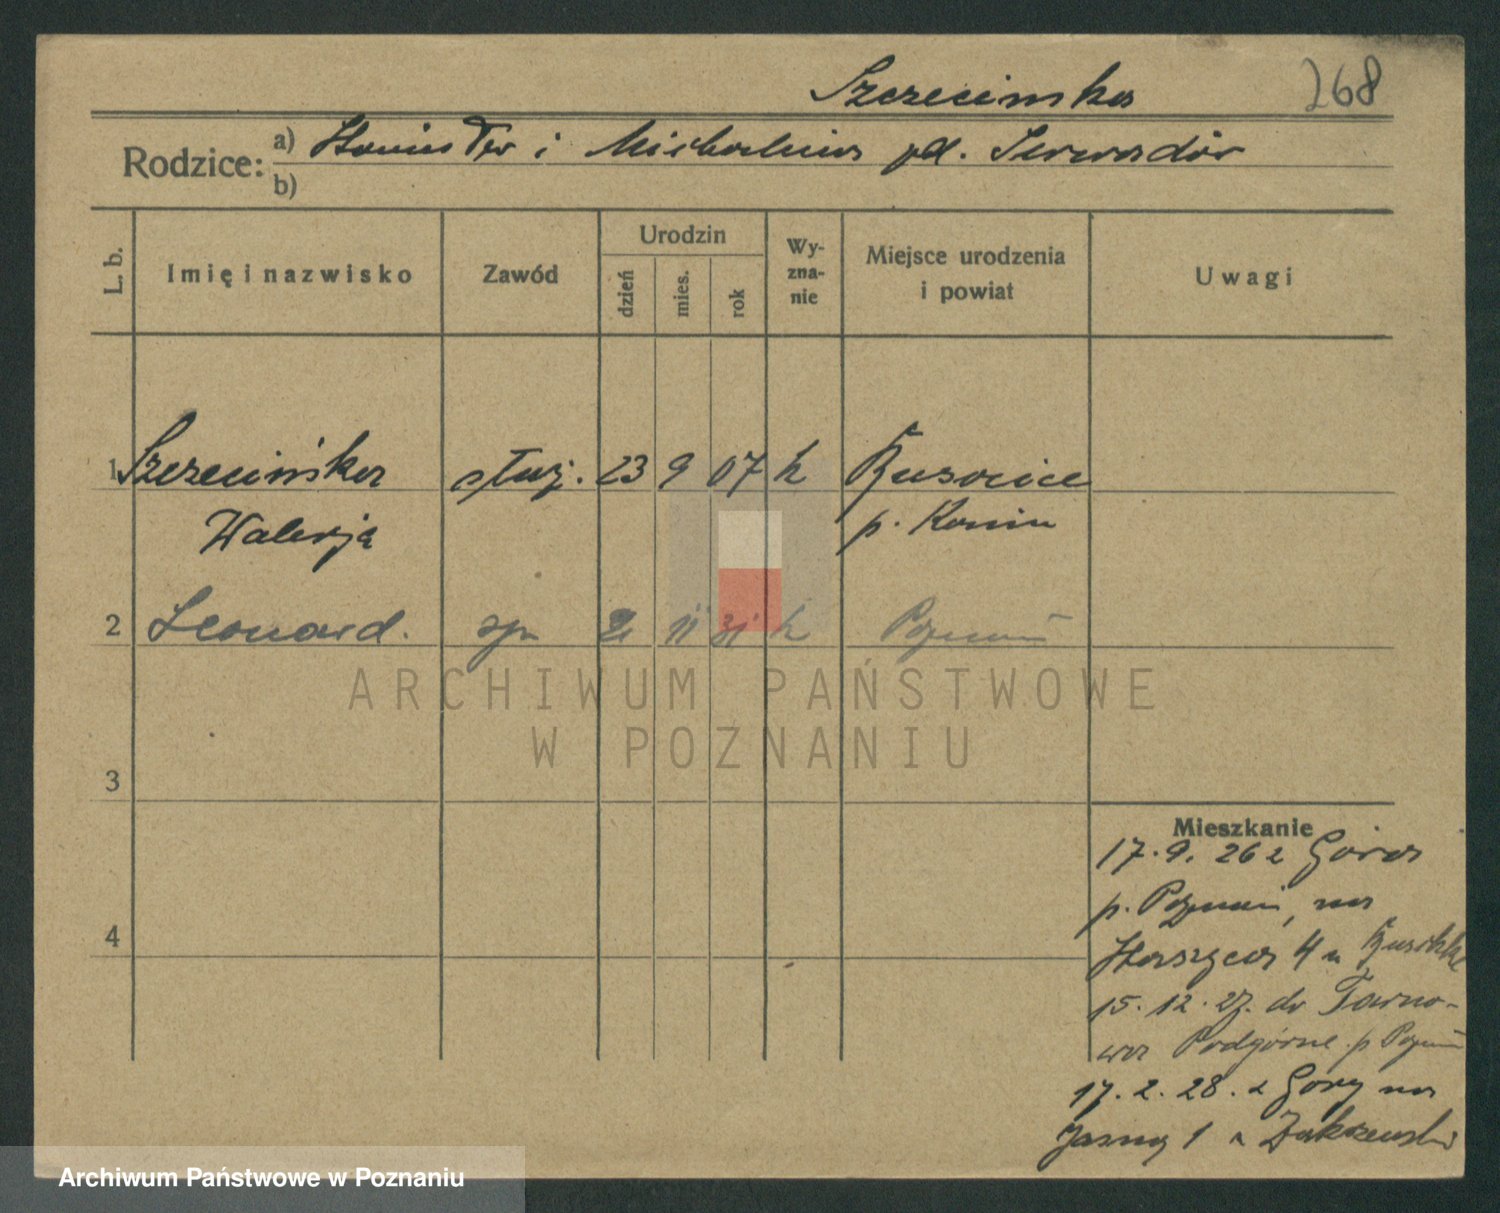 Szczecińska
268
Rodzice: a) Stanisław i Michalina pd. Serwadów
b)
L. b. Imię i nazwisko Zawód Urodzin dzień mies. rok Wy-zna-nie Miejsce urodzenia i powiat Uwagi
1 Szczecińska służ. 23 9 07 k
Walerja p. Konin
2 Leonard. syn 2 11 31 k Poznań
ARCHIWUM PAŃSTWOWE
W POZNANIU
3
Mieszkanie
17.9.26 z Góra
p. Poznań, na
4
Staszyca 4 u
15.12.27. do Tarno-
wa Podgórne p. Poznań
17.2.28. z Góry na
Jasną 1 u Zakrzewski
Archiwum Państwowe w Poznaniu